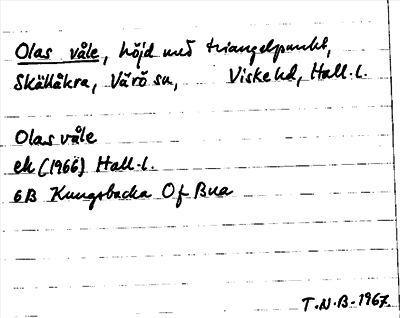 Olas våle, höjd med triangelpunkt,
Skällåkra, Värö sn, Viske hd, Hall.l.
Olas våle
ek (1966) Hall.l.
6B Kungsbacka Of Bua
T.N.B. 1967